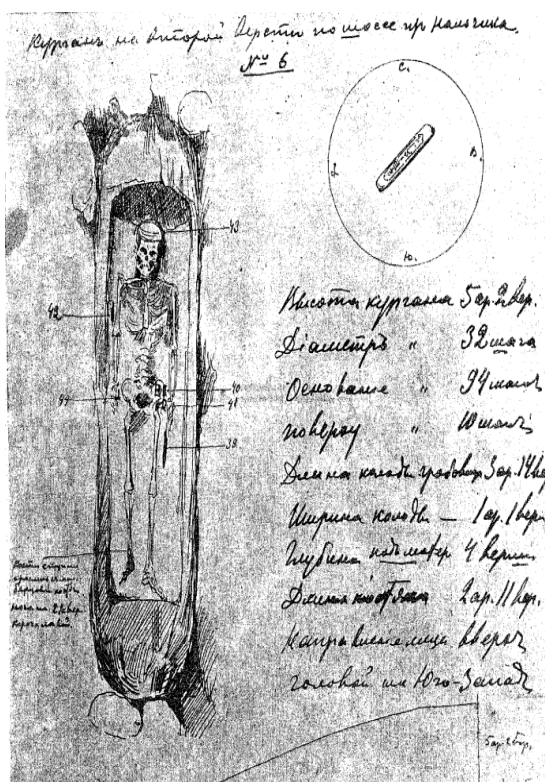 Курганъ на второй верстѣ по шоссе пр. Нальчика.
№ 6
С.
З.
В.
Ю.
43
42
40
44
41
38
Высота кургана 5 ар. 2 вер.
Діаметръ „ 32 шага
Основание „ 94 шаг.
поверху „ 10 шаговъ
Длина колоды гробовищ 3 ар. 14 ве
Ширина колоды — 1 ар. 1 верш
Глубина подъ матер 4 верш
Длина костяка 2 ар. 11 вер.
Направленіе лица вверхъ
головой на Юго-Западъ
5 ар. 2 вер.